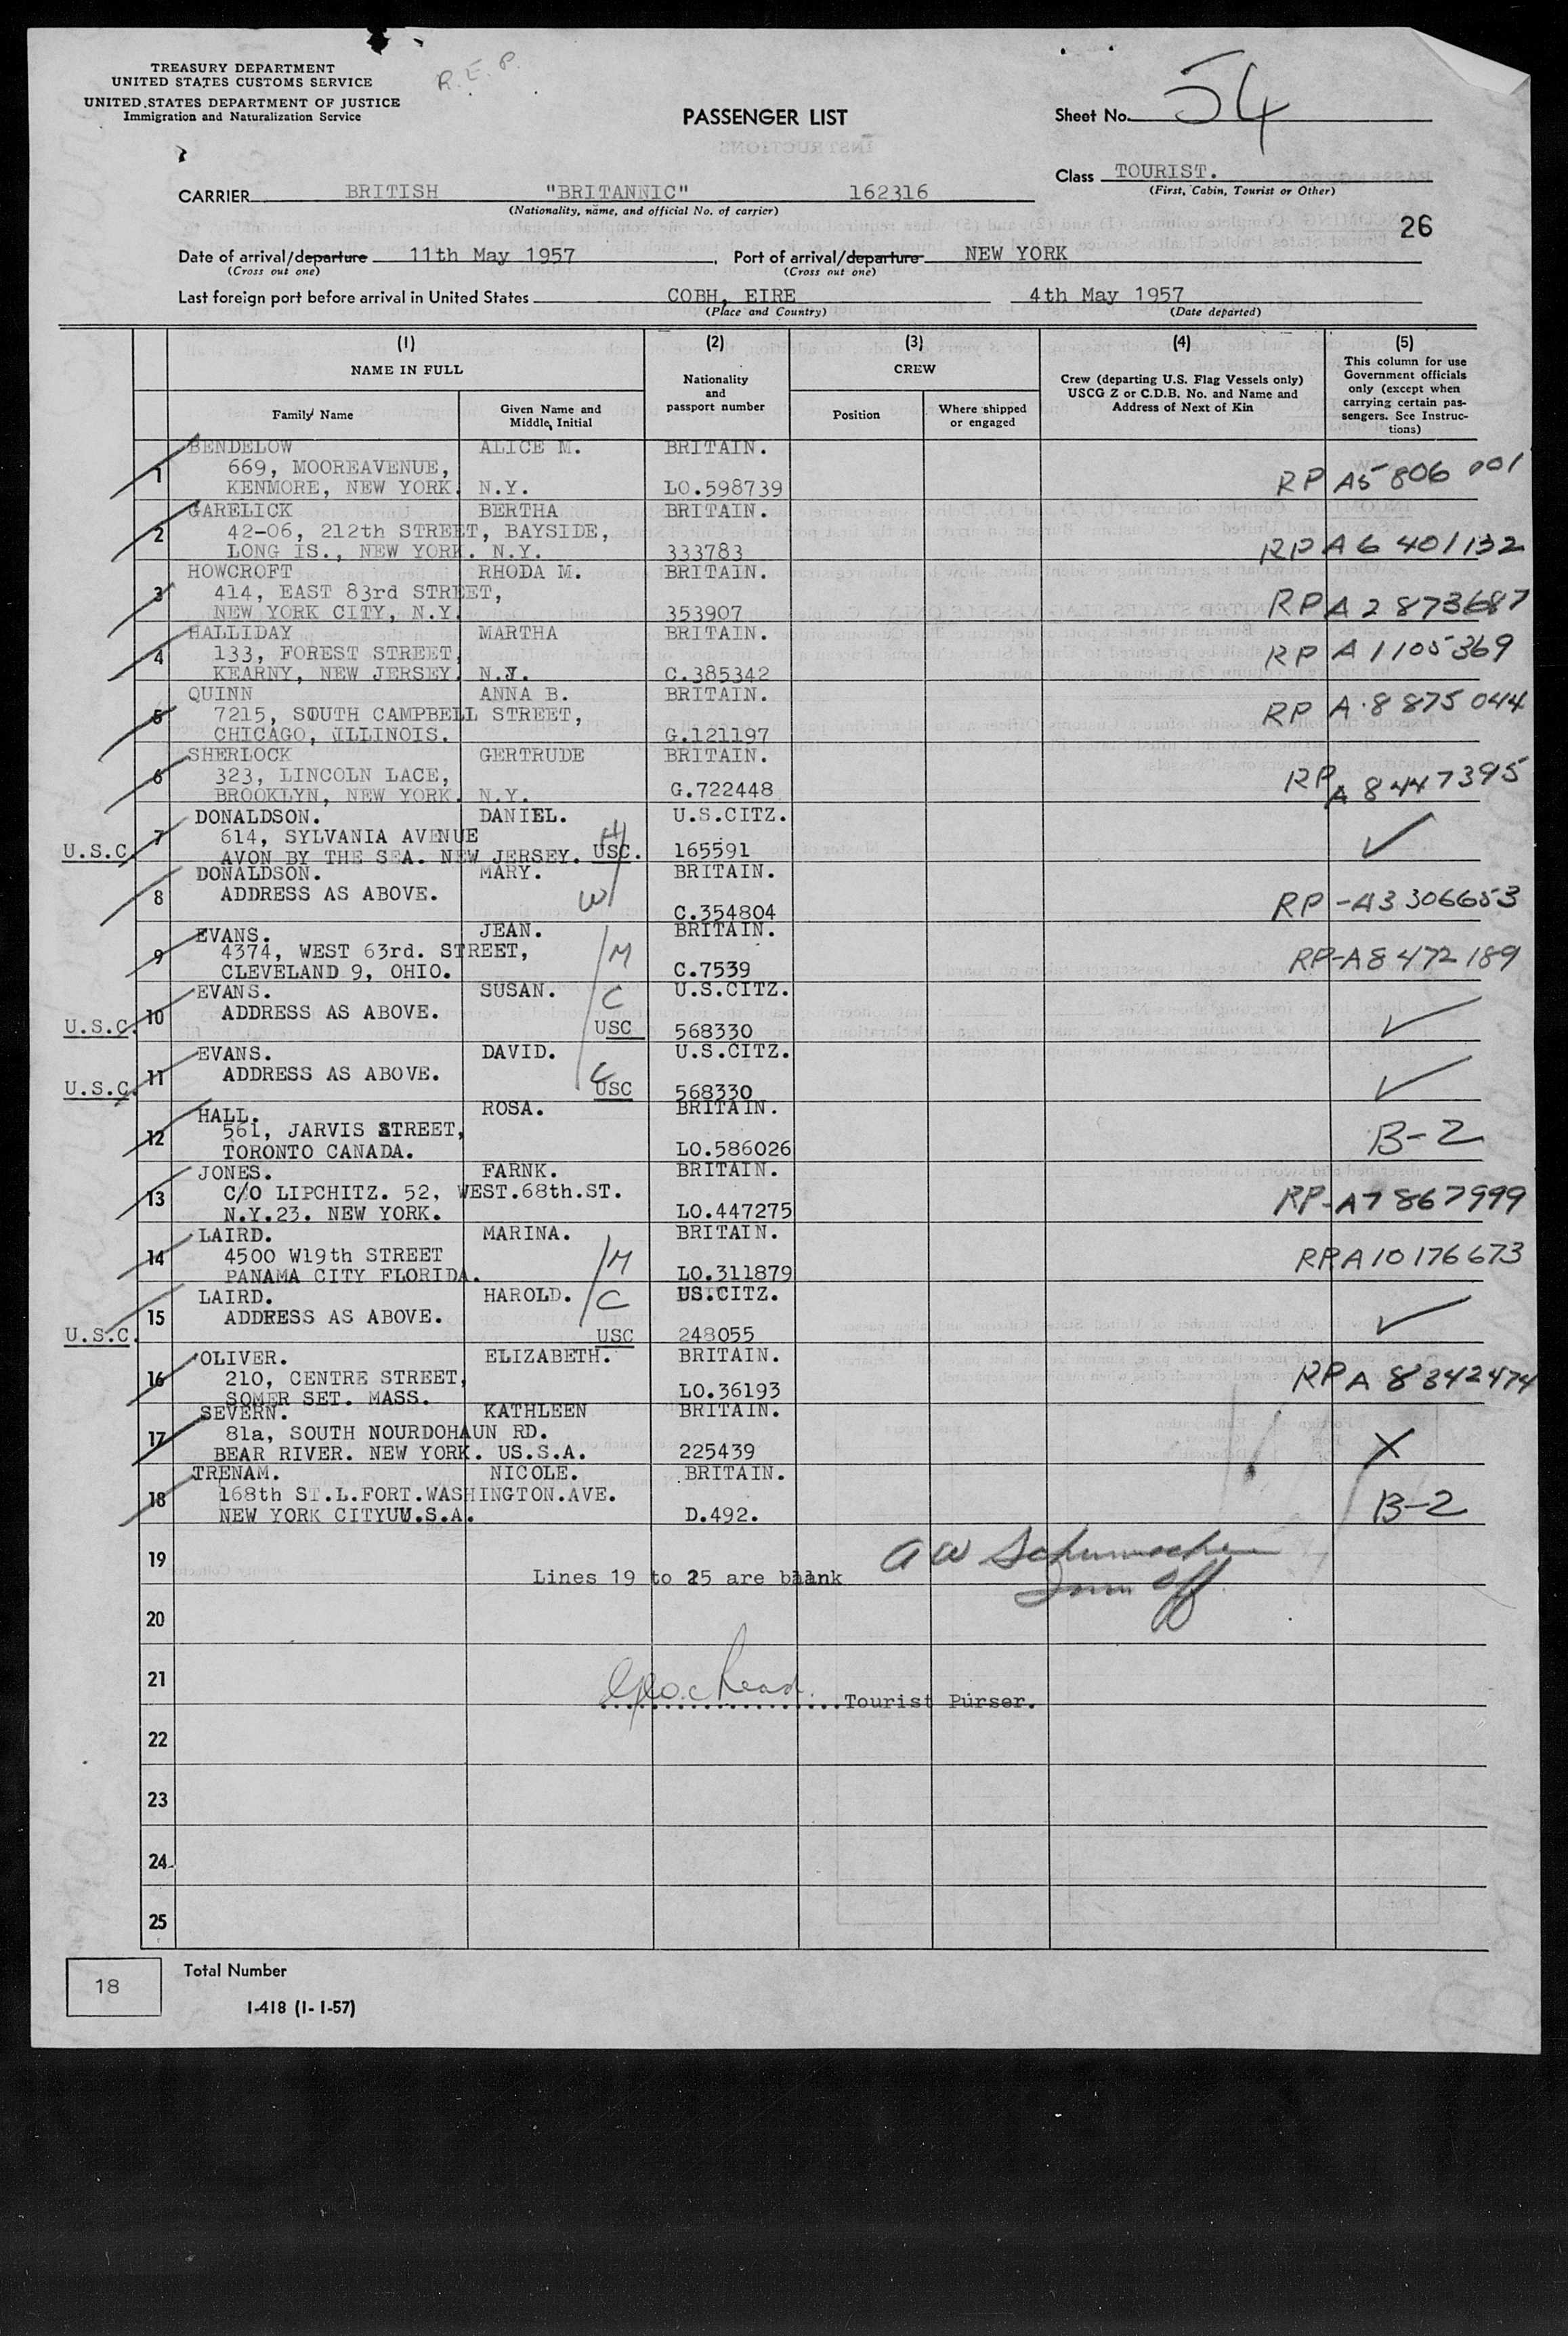 R.E.P.
TREASURY DEPARTMENT
UNITED STATES CUSTOMS SERVICE
UNITED STATES DEPARTMENT OF JUSTICE
Immigration and Naturalization Service
PASSENGER LIST
Sheet No. 54
INSTRUCTIONS
Class TOURIST.
(First, Cabin, Tourist or Other)
CARRIER BRITISH "BRITANNIC" 162316
(Nationality, name, and official No. of carrier)
26
Date of arrival/departure 11th May 1957, Port of arrival/departure NEW YORK
(Cross out one) (Cross out one)
Last foreign port before arrival in United States COBH, EIRE 4th May 1957
(Place and Country) (Date departed)
(1) NAME IN FULL
Family Name
Given Name and Middle Initial
(2) Nationality and passport number
(3) CREW
Position
Where shipped or engaged
(4) Crew (departing U.S. Flag Vessels only) USCG Z or C.D.B. No. and Name and Address of Next of Kin
(5) This column for use Government officials only (except when carrying certain passengers. See Instructions)
1 BENDELOW ALICE M. BRITAIN.
669, MOOREAVENUE,
KENMORE, NEW YORK. N.Y. LO.598739 RP A5 806 001
2 GARELICK BERTHA BRITAIN.
42-06, 212th STREET, BAYSIDE,
LONG IS., NEW YORK. N.Y. 333783 RP A6 401132
3 HOWCROFT RHODA M. BRITAIN.
414, EAST 83rd STREET,
NEW YORK CITY, N.Y. 353907 RP A2 873687
4 HALLIDAY MARTHA BRITAIN.
133, FOREST STREET,
KEARNY, NEW JERSEY. N.J. C.385342 RP A1105369
5 QUINN ANNA B. BRITAIN.
7215, SOUTH CAMPBELL STREET,
CHICAGO, ILLINOIS. G.121197 RP A.8875044
6 SHERLOCK GERTRUDE BRITAIN.
323, LINCOLN LACE,
BROOKLYN, NEW YORK. N.Y. G.722448 RP A 8447395
7 DONALDSON. DANIEL. U.S.CITZ.
614, SYLVANIA AVENUE H
U.S.C. AVON BY THE SEA. NEW JERSEY. USC. 165591 ✓
8 DONALDSON. MARY. BRITAIN.
ADDRESS AS ABOVE. W
C.354804 RP-A3 306653
9 EVANS. JEAN. BRITAIN.
4374, WEST 63rd. STREET, M
CLEVELAND 9, OHIO. C.7539 RP-A8 472 189
10 EVANS. SUSAN. C U.S.CITZ.
ADDRESS AS ABOVE.
U.S.C. USC 568330 ✓
11 EVANS. DAVID. U.S.CITZ.
ADDRESS AS ABOVE. C
U.S.C. USC 568330 ✓
12 HALL. ROSA. BRITAIN.
561, JARVIS STREET,
TORONTO CANADA. LO.586026 B-2
13 JONES. FARNK. BRITAIN.
C/O LIPCHITZ. 52, WEST.68th.ST.
N.Y.23. NEW YORK. LO.447275 RP-A7 867999
14 LAIRD. MARINA. BRITAIN.
4500 W19th STREET M
PANAMA CITY FLORIDA. LO.311879 RPA10176673
15 LAIRD. HAROLD. C US.CITZ.
ADDRESS AS ABOVE.
U.S.C. USC 248055 ✓
16 OLIVER. ELIZABETH. BRITAIN.
210, CENTRE STREET,
SOMER SET. MASS. LO.36193 RPA 8342474
17 SEVERN. KATHLEEN BRITAIN.
81a, SOUTH NOURDOHAUN RD.
BEAR RIVER. NEW YORK. US.S.A. 225439 X
18 TRENAM. NICOLE. BRITAIN.
168th ST.L.FORT.WASHINGTON.AVE.
NEW YORK CITYUU.S.A. D.492. B-2
19 A W Schumacher
Lines 19 to 25 are blank Imm Off
20
21
Geo. c head Tourist Purser.
22
23
24
25
18 Total Number
I-418 (1-1-57)